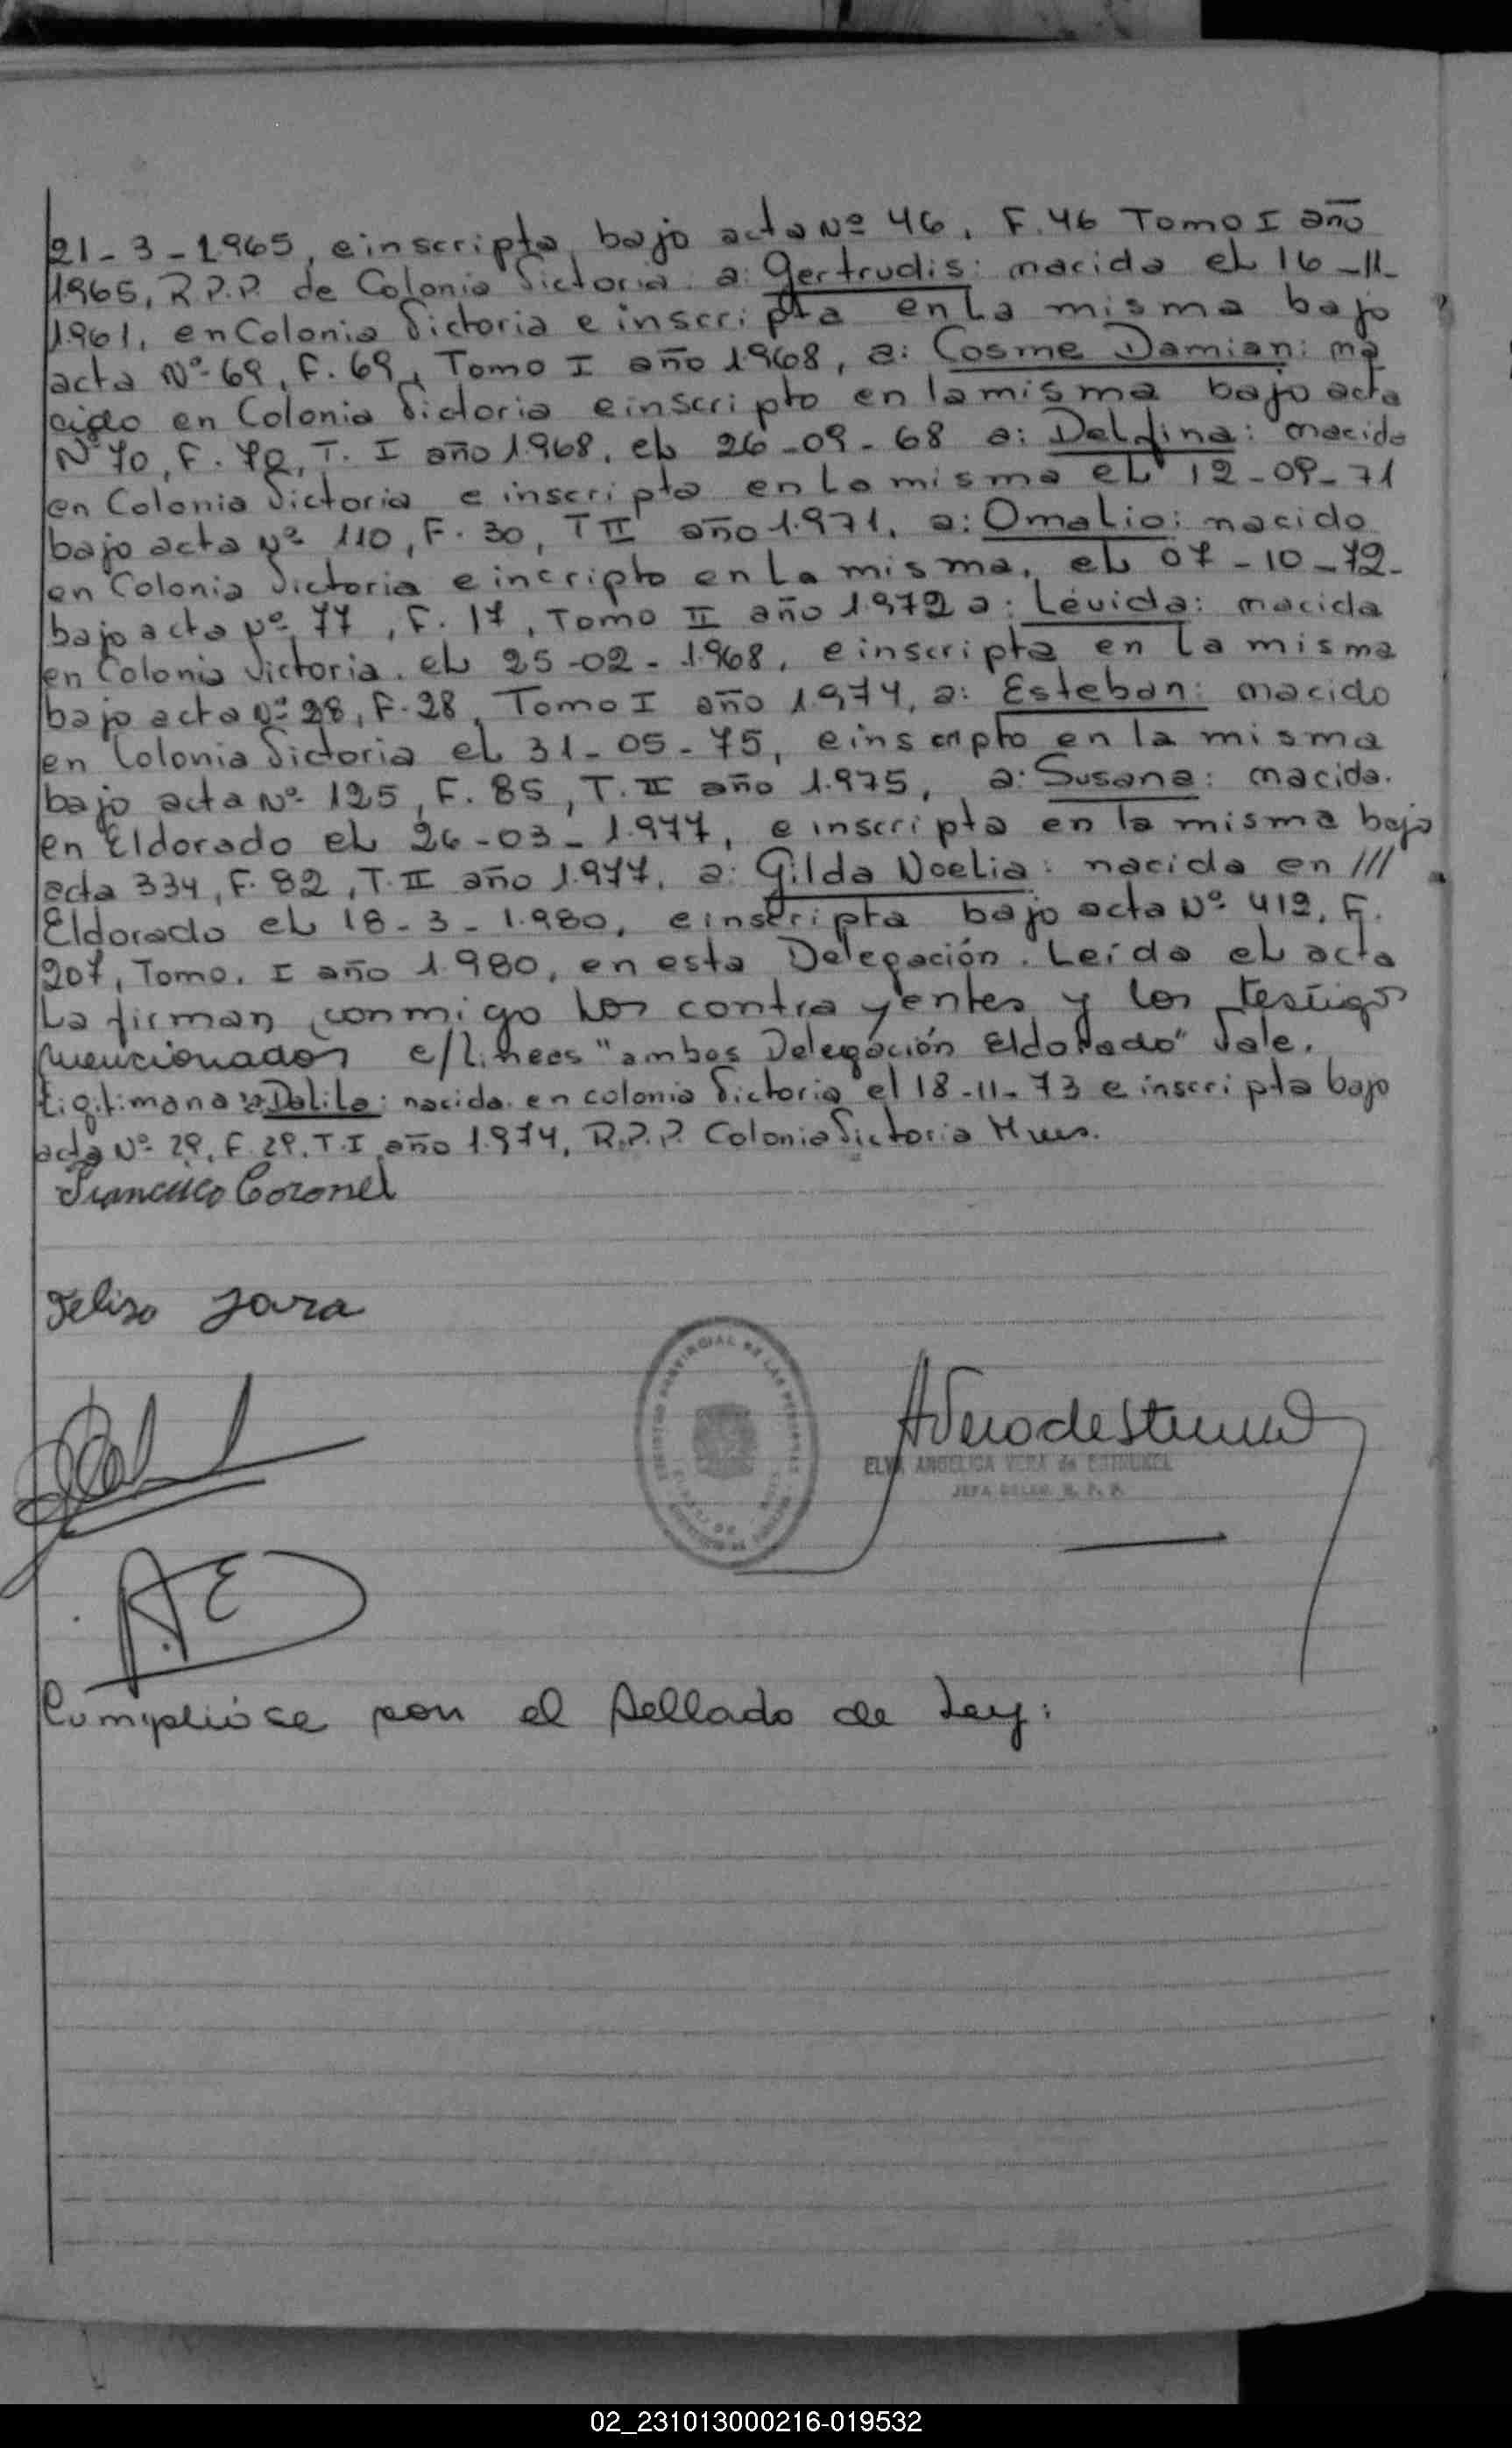 21-3-1965, e inscripta bajo acta Nº 46, F.46 Tomo I año
1965, R.P.P. de Colonia Victoria. a: Gertrudis: nacida el 16-11-
1.961, en Colonia Victoria e inscripta en la misma bajo
acta Nº 69, F. 69, Tomo I año 1.968, a: Cosme Damian: na
cido en Colonia Victoria e inscripto en la misma bajo acta
Nº 70, F. 70, T. I año 1.968, el 26-09-68 a: Delfina: nacida
en Colonia Victoria e inscripta en la misma el 12-09-71
bajo acta Nº 110, F. 30, T II año 1.971, a: Omalio: nacido
en Colonia Victoria e incripto en la misma, el 07-10-72-
bajo acta Nº 77, F. 17, Tomo II año 1.972 a: Lévida: nacida
en Colonia Victoria. el 25-02-1.968, e inscripta en la misma
bajo acta Nº 28, F. 28, Tomo I año 1.974, a: Esteban: nacido
en Colonia Victoria el 31-05-75, e inscripto en la misma
bajo acta Nº 125, F. 85, T. II año 1.975, a: Susana: nacida.
en Eldorado el 26-03-1.977, e inscripta en la misma bajo
acta 334, F. 82, T. II año 1.977, a: Gilda Noelia: nacida en ///
Eldorado el 18-3-1.980, e inscripta bajo acta Nº 412, F.
207, Tomo. I año 1.980, en esta Delegación. Leída el acta
la firman conmigo los contrayentes y los testigos
mencionados e/lineas "ambos Delegación Eldorado" Vale.
Ligitiman a: Dalila: nacida en colonia Victoria el 18-11-73 e inscripta bajo
acta Nº 29, F. 29, T. I año 1.974, R.P.P. Colonia Victoria Mnes.
Francisco Coronel
Felisa Jara
REGISTRO PROVINCIAL DE LAS PERSONAS
AVera de Strumel
ELVA ANGELICA VERA de
JEFA DELEG. R. P. P.
A E
Cumpliose con el sellado de Ley:
02_231013000216-019532